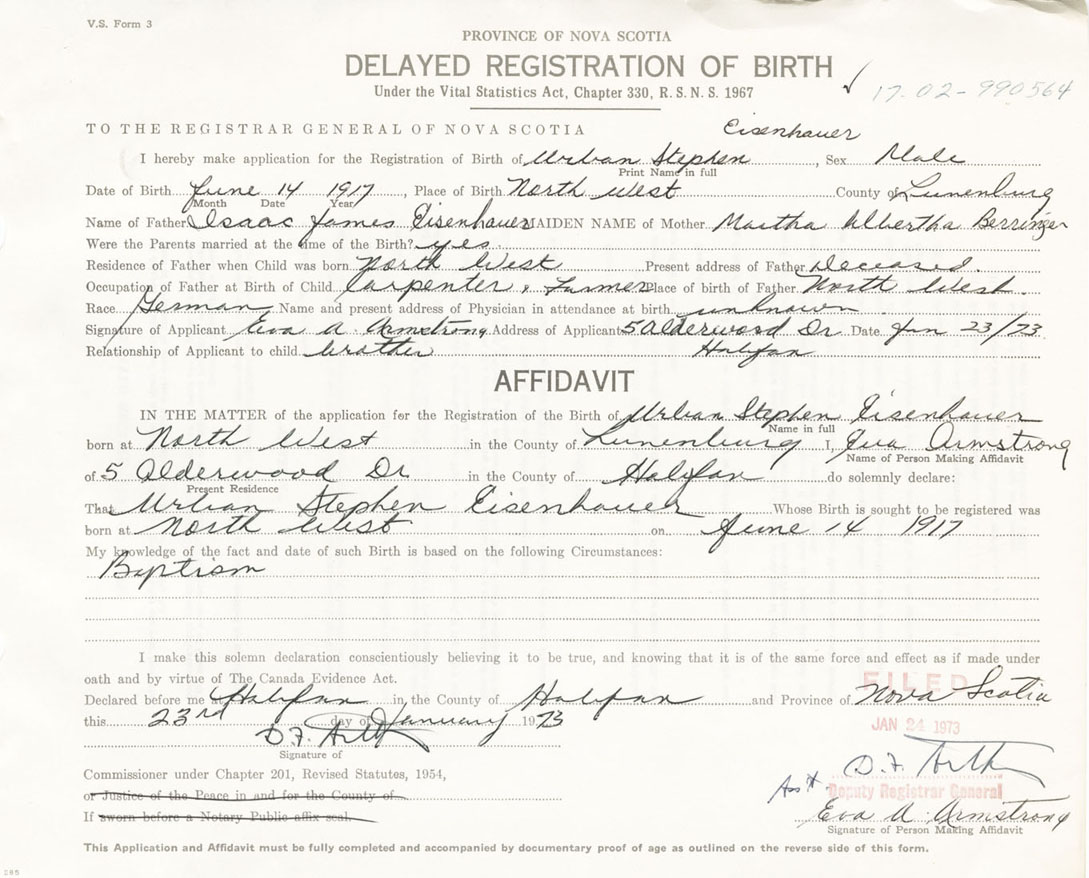 V.S. Form 3
PROVINCE OF NOVA SCOTIA
DELAYED REGISTRATION OF BIRTH
Under the Vital Statistics Act, Chapter 330, R. S. N. S. 1967
17-02-990564
TO THE REGISTRAR GENERAL OF NOVA SCOTIA Eisenhauer
I hereby make application for the Registration of Birth of Urban Stephen, Sex Male
Print Name in full
Date of Birth June 14 1917, Place of Birth North West County of Lunenburg
Month Date Year
Name of Father Isaac James Eisenhauer MAIDEN NAME of Mother Martha Albertha Berringer
Were the Parents married at the time of the Birth? yes
Residence of Father when Child was born North West Present address of Father Deceased.
Occupation of Father at Birth of Child Carpenter & Farmer Place of birth of Father North West.
Race German Name and present address of Physician in attendance at birth unknown
Signature of Applicant Eva A Armstrong Address of Applicant 5 Alderwood Dr Date Jan 23/73
Relationship of Applicant to child brother Halifax
AFFIDAVIT
IN THE MATTER of the application for the Registration of the Birth of Urban Stephen Eisenhauer
Name in full
born at North West in the County of Lunenburg I, Eva Armstrong
Name of Person Making Affidavit
of 5 Alderwood Dr in the County of Halifax do solemnly declare:
Present Residence
That Urban Stephen Eisenhauer Whose Birth is sought to be registered was
born at North West on June 14 1917
My knowledge of the fact and date of such Birth is based on the following Circumstances:
Baptism
I make this solemn declaration conscientiously believing it to be true, and knowing that it is of the same force and effect as if made under
oath and by virtue of The Canada Evidence Act.
FILED
Declared before me at Halifax in the County of Halifax and Province of Nova Scotia
this 23rd day of January 1973
JAN 24 1973
Signature of
Commissioner under Chapter 201, Revised Statutes, 1954,
or Justice of the Peace in and for the County of
Ass't Deputy Registrar General
If sworn before a Notary Public affix seal.
Eva A Armstrong
Signature of Person Making Affidavit
This Application and Affidavit must be fully completed and accompanied by documentary proof of age as outlined on the reverse side of this form.